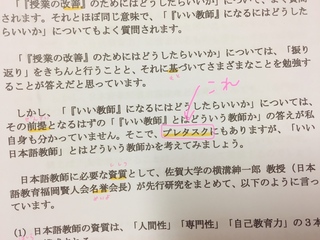 「『授業の改善』のためにはどうしたらいいか」について、よく質
問されます。それとほぼ同じ意味で、「『いい教師』になるにはどうした
らいいか」についてもよく質問されます。
「『授業の改善』のためにはどうしたらいいか」については、「振り
返り」をきちんと行うことと、それに基づいてさまざまなことを勉強す
ることが答えだと思っています。
これ
しかし、「『いい教師』になるにはどうしたらいいか」については、
その前提となるはずの「『いい教師』とはどういう教師か」の答えが私
自身も分かっていません。そこで、プレタスクにもありますが、「いい
日本語教師」とはどういう教師かを考えてみましょう。
日本語教師に必要な資質として、佐賀大学の横溝紳一郎 教授（日
本語教育福岡賢人会名誉会長）が先行研究をまとめて、以下のように言っ
ています。
(1) 日本語教師の資質は、「人間性」「専門性」「自己教育力」の３本